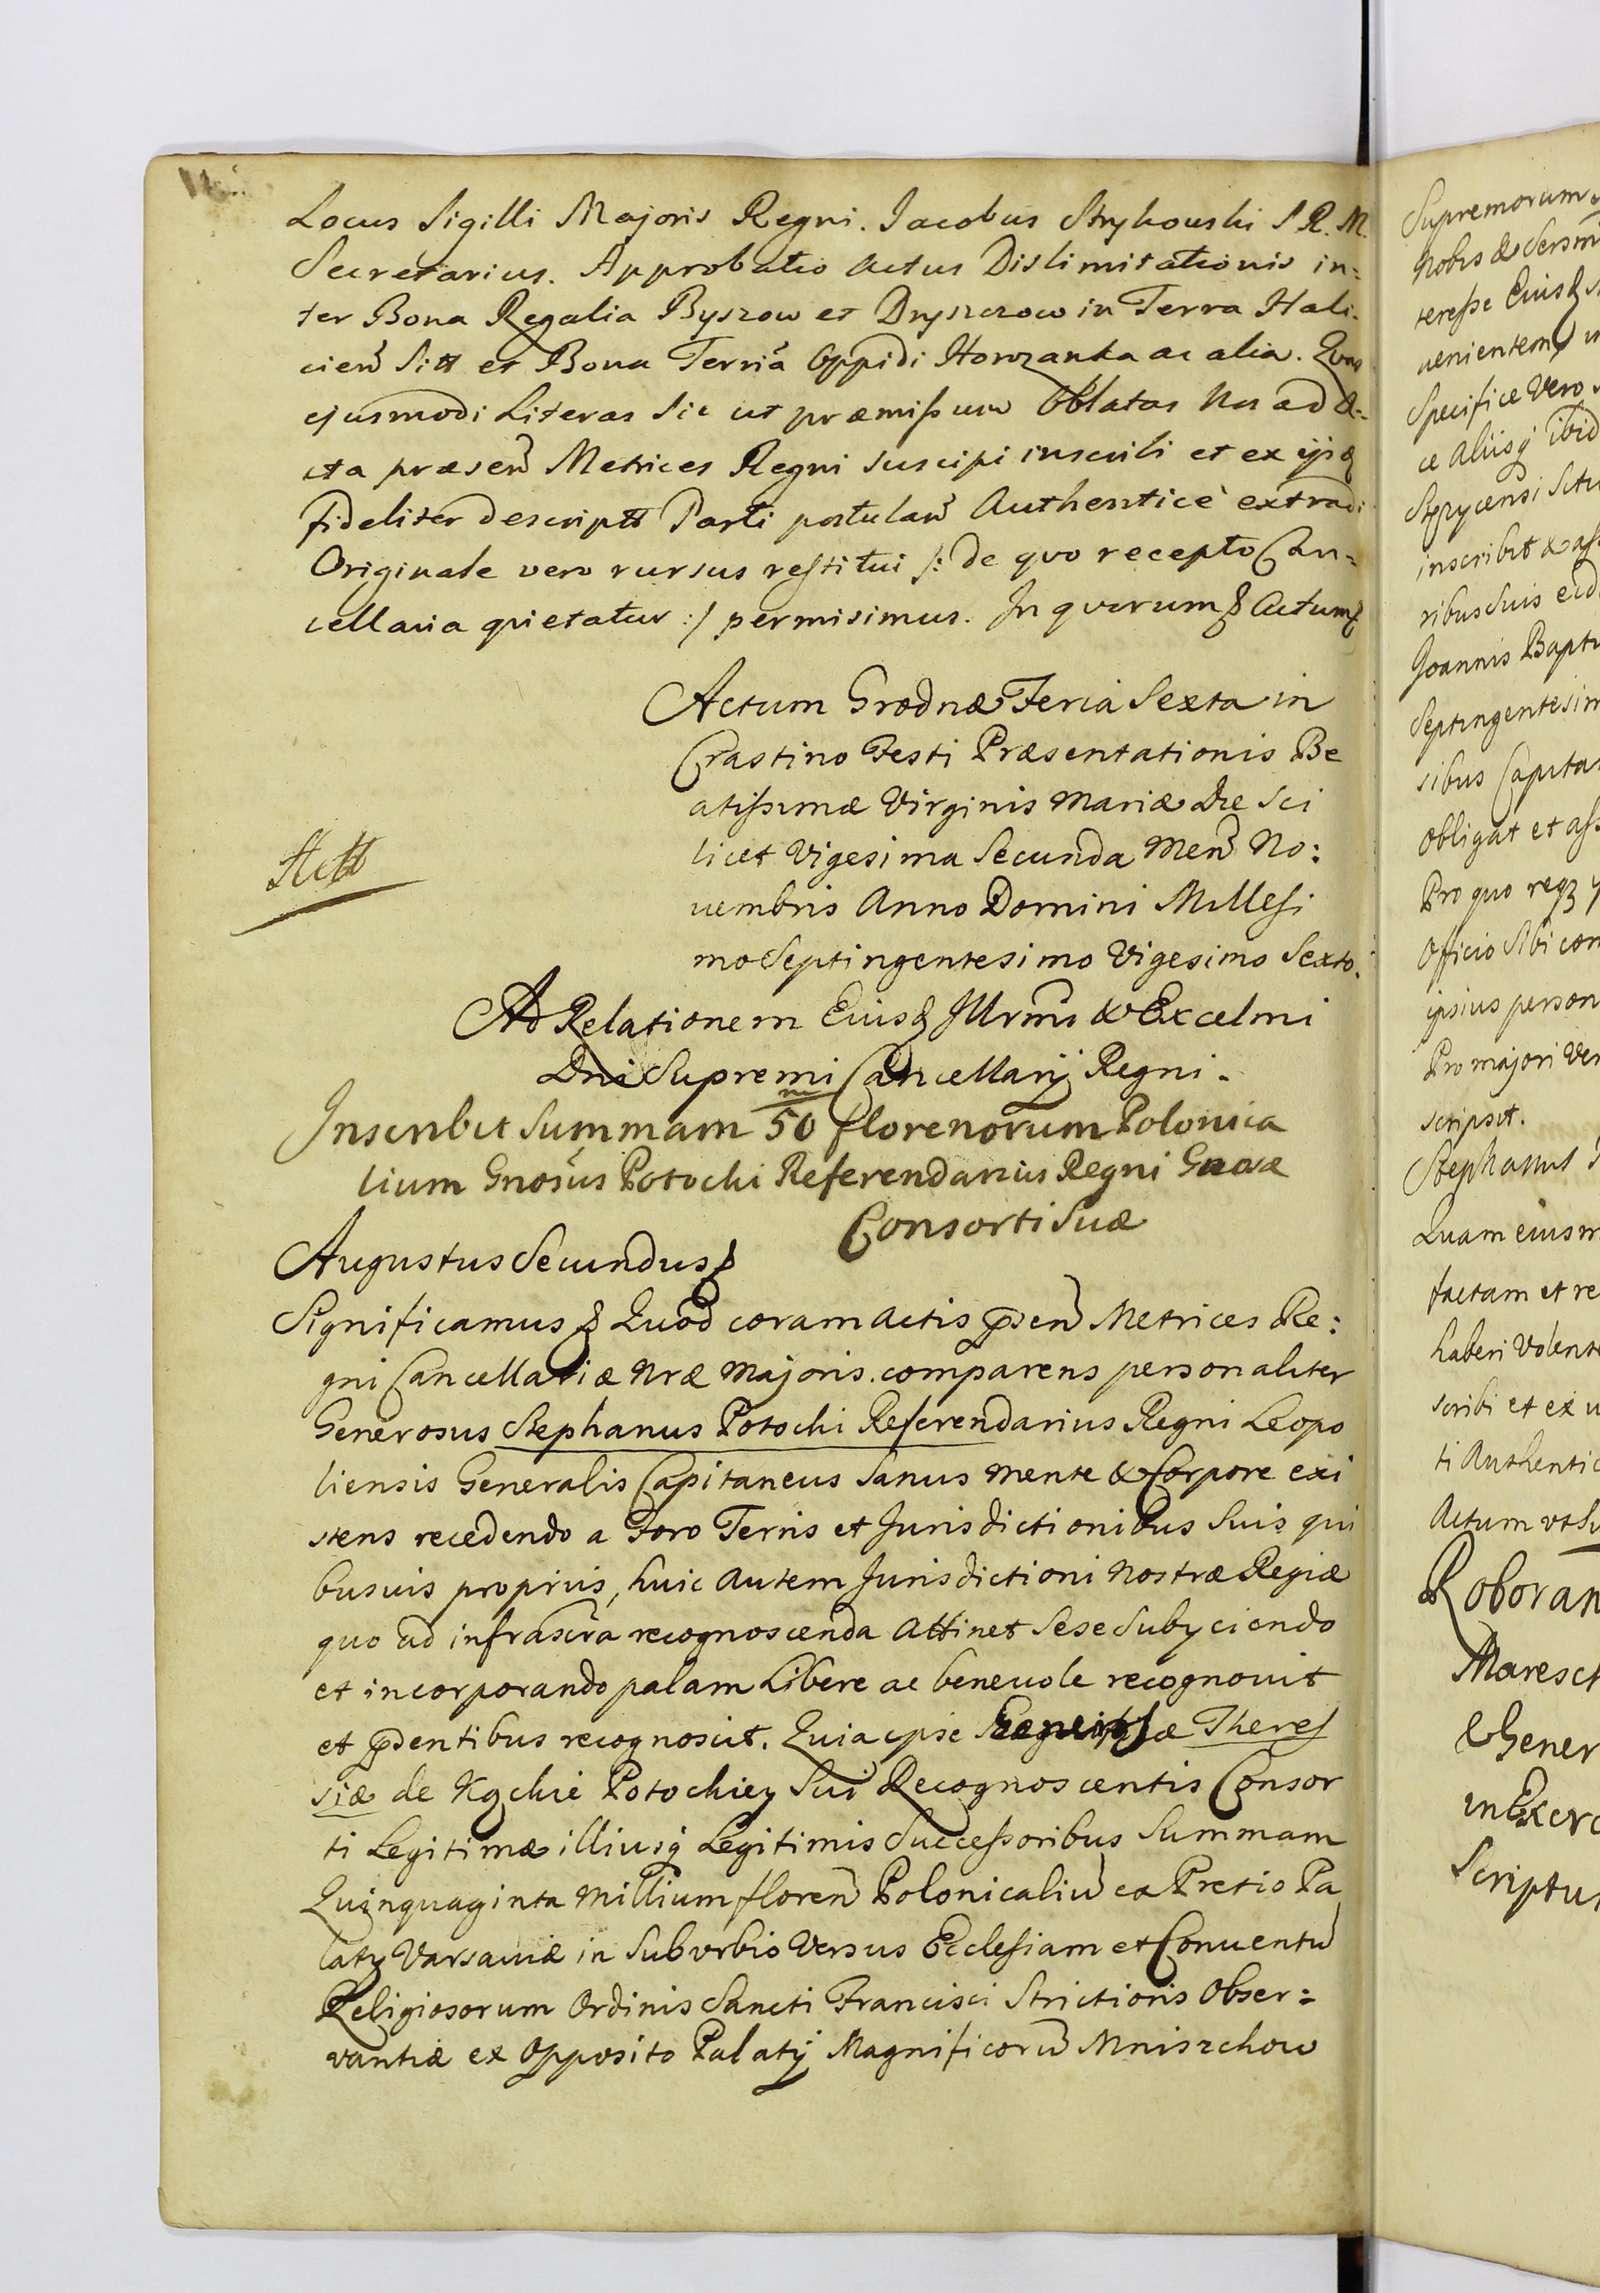 Locus Sigilli Majoris Regni. Jacobus Strykowski S R. M.
Secretarius. Approbatio Actus Dislimitationis in=
ter Bona Regalia Byszow et Dryszczow in Terra Hali=
cien Sitt et Bona Terria Oppidi Horozanka ac alia. Quas
ejusmodi Literas Sic ut præmissum Oblatas Nos ad A=
cta præsen Metrices Regni suscipi inscribi et ex ijs
fideliter descriptt Parti postulan Authenticè extradi
Originale vero rursus restitui /: de quo recepto Can=
cellaria quietatur :/ permisimus. In quorum Actum
Actum Grodnæ Feria Sexta in
Crastino Festi Præsentationis Be
atissimæ Virginis Mariæ Die Sci
licet Vigesima Secunda Men No:
uembris Anno Domini Millesi
mo Septingentesimo Vigesimo Sexto.
Actt
Ad Relationem Eius Illrmi & Excelmi
Dni Supremi Cancellarij Regni.
Inscribit Summam 50 m florenorum Polonica
lium Gnosus Potocki Referendarius Regni
Consorti Suæ
Augustus Secundus
Significamus Quod coram Actis psen Metrices Re:
gni Cancellariæ Nræ Majoris. comparens personaliter
Generosus Stephanus Potocki Referendarius Regni Leopo
liensis Generalis Capitaneus Sanus mente & Corpore exi
stens recedendo a Foro Terris et Jurisdictionibus Suis qui
busuis proprijs, huic Autem Jurisdictioni Nostræ Regiæ
quo ad infrascra recognoscenda Attinet Sese Subijciendo
et incorporando palam Libere ac beneuole recognouit
et pdentibus recognoscit. Quia ipse Theres
siæ de Kąckie Potockiey Sui Recognoscentis Consor
ti Legitimæ illiusq Legitimis Successoribus Summam
Quinquaginta Millium floren Polonicaliu ex Pretio Pa
latij Varsauiæ in Suburbio Versus Ecclesiam et Conuentu
Religiosorum Ordinis Sancti Francisci Strictioris Obser=
vantiæ ex Opposito Palatij Magnificoru Mniszchow
Supremorum
Nobis &
teresse Eius
uenientem
Specifice Vero
ce Aliisq ibid
inscribit & ass
ribus Suis eid
Joannis Bapti
Septingentesim
sibus Capita
Obligat et ass
Pro quo
Officio Sibi com
ipsius person
Pro majori Ver
scripsit.
Stephanus
Quam eiusm
factam et re
haberi Volent
scribi et ex
ti Authentic
Actum ut Su
Roboran
Maresch
& Gener
in Exerc
Scriptus